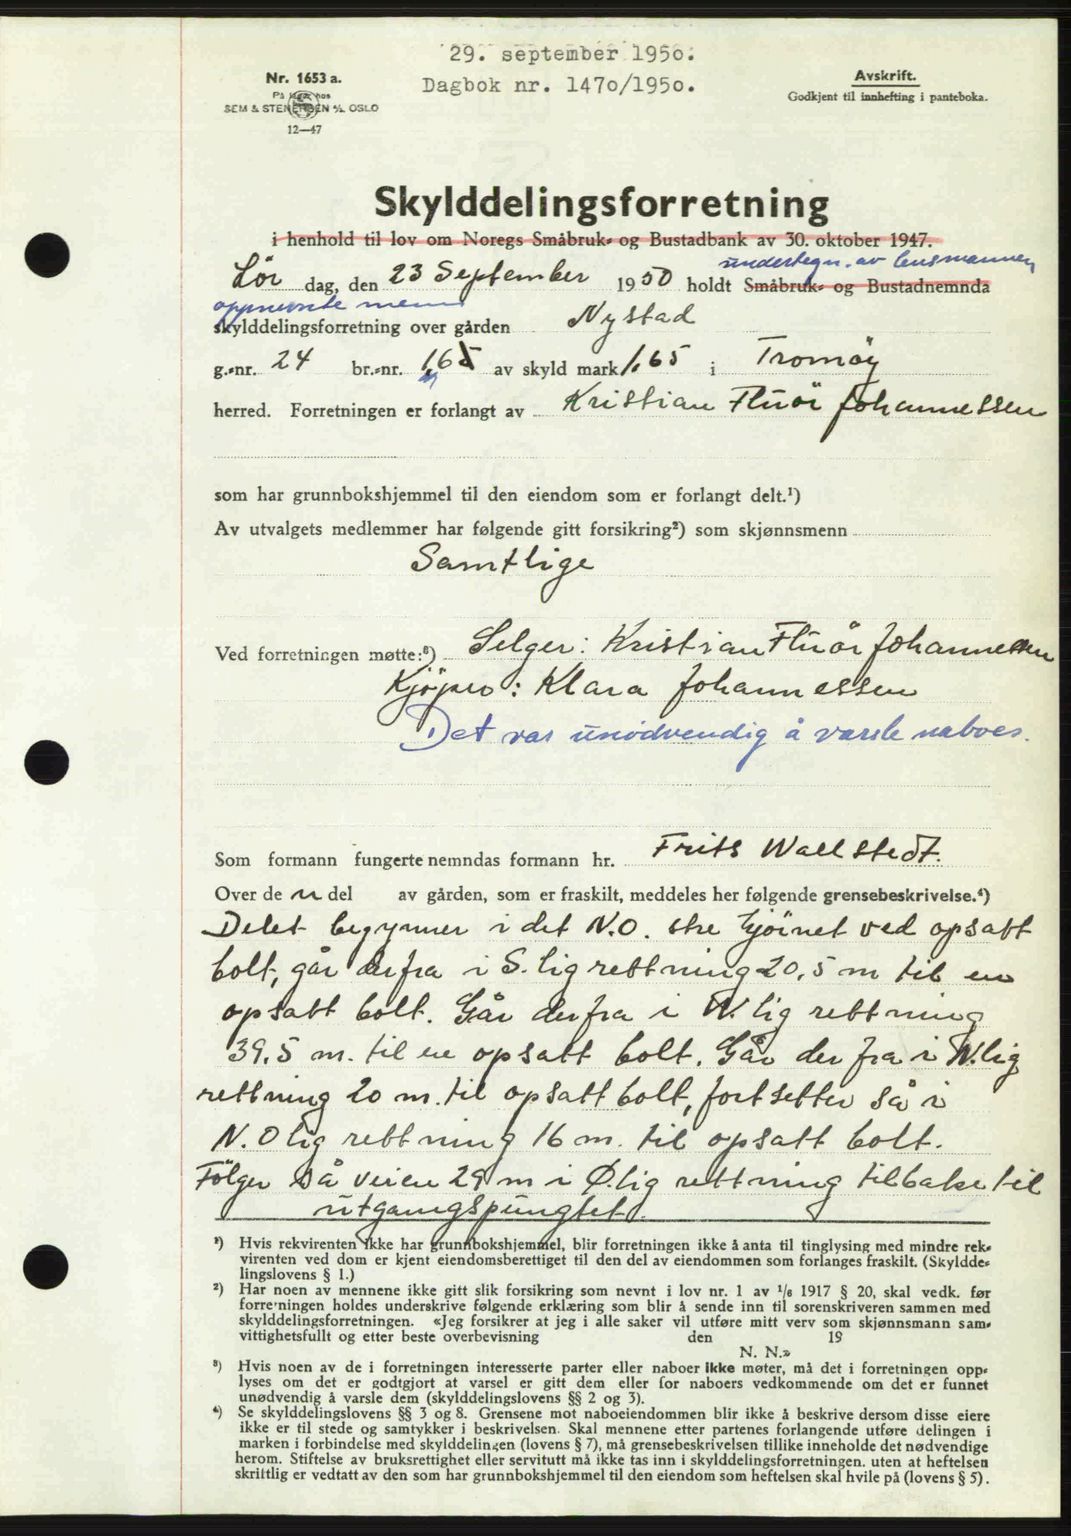 29. september 1950.
Dagbok nr. 1470/1950.
Nr. 1653 a.
På lager hos
SEM & STENERSEN A/S. OSLO
12—47
Avskrift.
Godkjent til innhefting i panteboka.
Skylddelingsforretning
i henhold til lov om Noregs Småbruk- og Bustadbank av 30. oktober 1947.
undertegn. av lensmannen
Lør dag, den 23 September 1950 holdt Småbruk- og Bustadnemnda
oppnevnte menn
skylddelingsforretning over gården Nystad
g.-nr. 24 br.-nr. 165 av skyld mark 1,65 i Tromøy
herred. Forretningen er forlangt av Kristian Flüör Johannessen
som har grunnbokshjemmel til den eiendom som er forlangt delt.¹)
Av utvalgets medlemmer har følgende gitt forsikring²) som skjønnsmenn
Samtlige
Ved forretningen møtte:³) Selger: Kristian Flüör Johannessen
Kjøper: Klara Johannessen
Det var unødvendig å varsle naboer.
Som formann fungerte nemndas formann hr. Frits Wallstedt.
Over de n del av gården, som er fraskilt, meddeles her følgende grensebeskrivelse.⁴)
Delet begynner i det N.O. stre hjörnet ved opsatt
bolt, går derfra i S.lig rettning 20,5 m til en
opsatt bolt. Går derfra i W.lig rettning
39,5 m. til en opsatt bolt. Går der fra i N.lig
rettning 20 m. til opsatt bolt, fortsetter så i
N.O lig rettning 16 m. til opsatt bolt.
Fölger så veien 29 m i Ø.lig rettning tilbake til
utgangspungtet.
¹) Hvis rekvirenten ikke har grunnbokshjemmel, blir forretningen ikke å anta til tinglysing med mindre rek-
virenten ved dom er kjent eiendomsberettiget til den del av eiendommen som forlanges fraskilt. (Skyldde-
lingslovens § 1.)
²) Har noen av mennene ikke gitt slik forsikring som nevnt i lov nr. 1 av ¹/₆ 1917 § 20, skal vedk. før
forretningen holdes underskrive følgende erklæring som blir å sende inn til sorenskriveren sammen med
skylddelingsforretningen. «Jeg forsikrer at jeg i alle saker vil utføre mitt verv som skjønnsmann sam-
vittighetsfullt og etter beste overbevisning den 19
N. N.»
³) Hvis noen av de i forretningen interesserte parter eller naboer ikke møter, må det i forretningen opp-
lyses om det er godtgjort at varsel er gitt dem eller for naboers vedkommende om det er funnet
unødvendig å varsle dem (skylddelingslovens §§ 2 og 3).
⁴) Se skylddelingslovens §§ 3 og 8. Grensene mot naboeiendommen blir ikke å beskrive dersom disse eiere
ikke er til stede og samtykker i beskrivelsen. Skal mennene etter partenes forlangende utføre delingen i
marken i forbindelse med skylddelingen (lovens § 7), må grensebeskrivelsen tillike inneholde det nødvendige
herom. Stiftelse av bruksrettighet eller servitutt må ikke tas inn i skylddelingsforretningen. uten at heftelsen
skriftlig er vedtatt av den som har grunnbokshjemmel til den eiendom som heftelsen skal hvile på (lovens § 5).